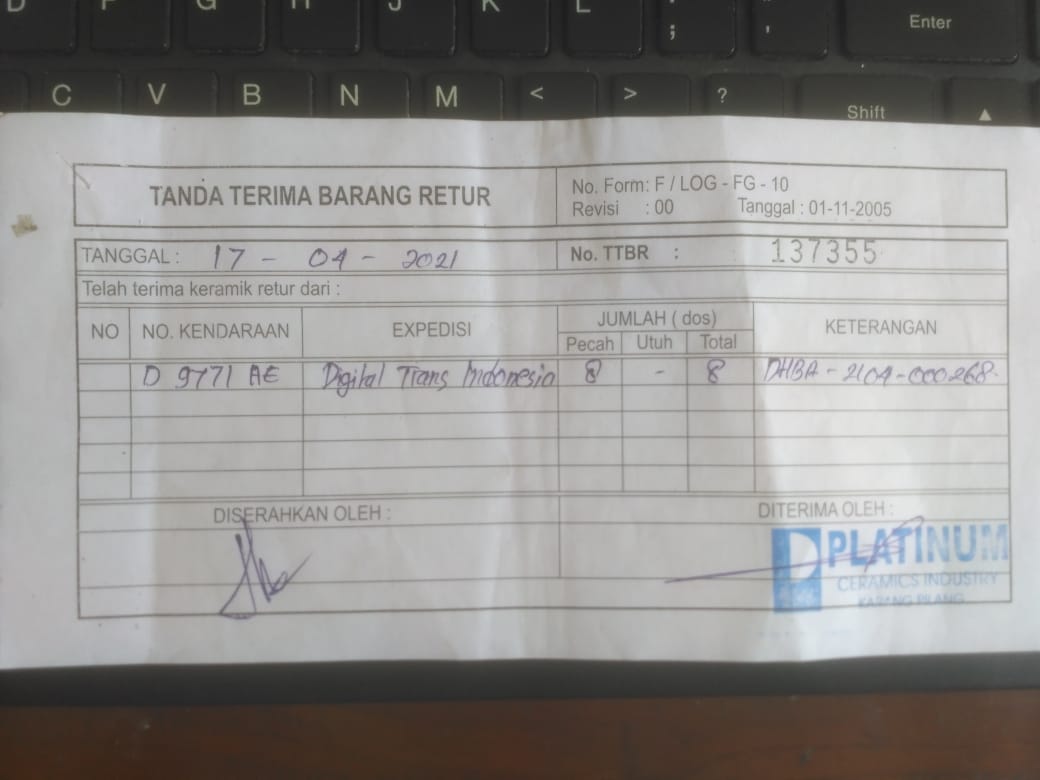 D F G H J K L : ; " ' Enter
C V B N M < > ? Shift ▲
TANDA TERIMA BARANG RETUR
No. Form: F / LOG - FG - 10
Revisi : 00 Tanggal : 01-11-2005
TANGGAL : 17 - 04 - 2021
No. TTBR : 137355
Telah terima keramik retur dari :
NO NO. KENDARAAN EXPEDISI JUMLAH ( dos) KETERANGAN
Pecah Utuh Total
D 9771 AE Digital Trans Indonesia 8 - 8 DHBA - 2104 - 000268.
DISERAHKAN OLEH : DITERIMA OLEH :
PLATINUM
CERAMICS INDUSTRY
KARANG PILANG